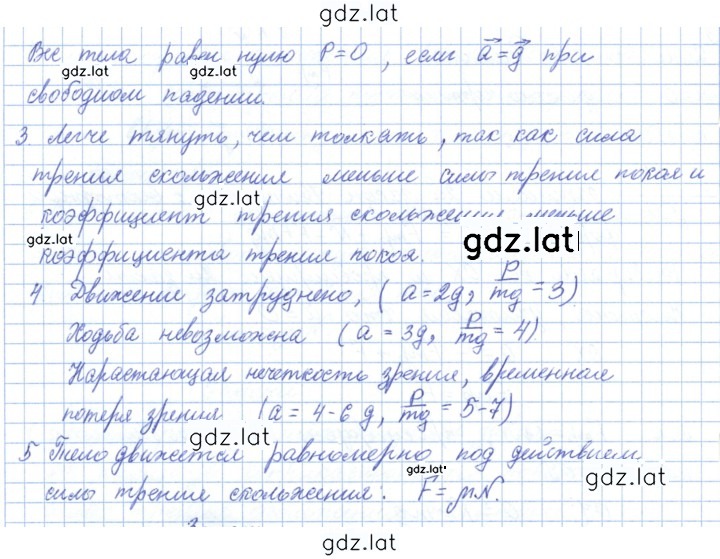 gdz.lat
Вес тела равен нулю P=0, если a⃗=g⃗ при
gdz.lat gdz.lat
свободном падении.
3. Легче тянуть, чем толкать, так как сила
трения скольжения меньше силы трения покоя и
gdz.lat
коэффициент трения скольжения меньше
gdz.lat gdz.lat
коэффициента трения покоя.
4 Движение затруднено, (a=2g, P/mg=3)
Ходьба невозможна (a=3g, P/mg=4)
Нарастающая нечеткость зрения, временная
потеря зрения (a=4-6g, P/mg=5-7)
gdz.lat
5 Тело движется равномерно под действием
gdz.lat gdz.lat
силы трение скольжения: F=μN.
gdz.lat